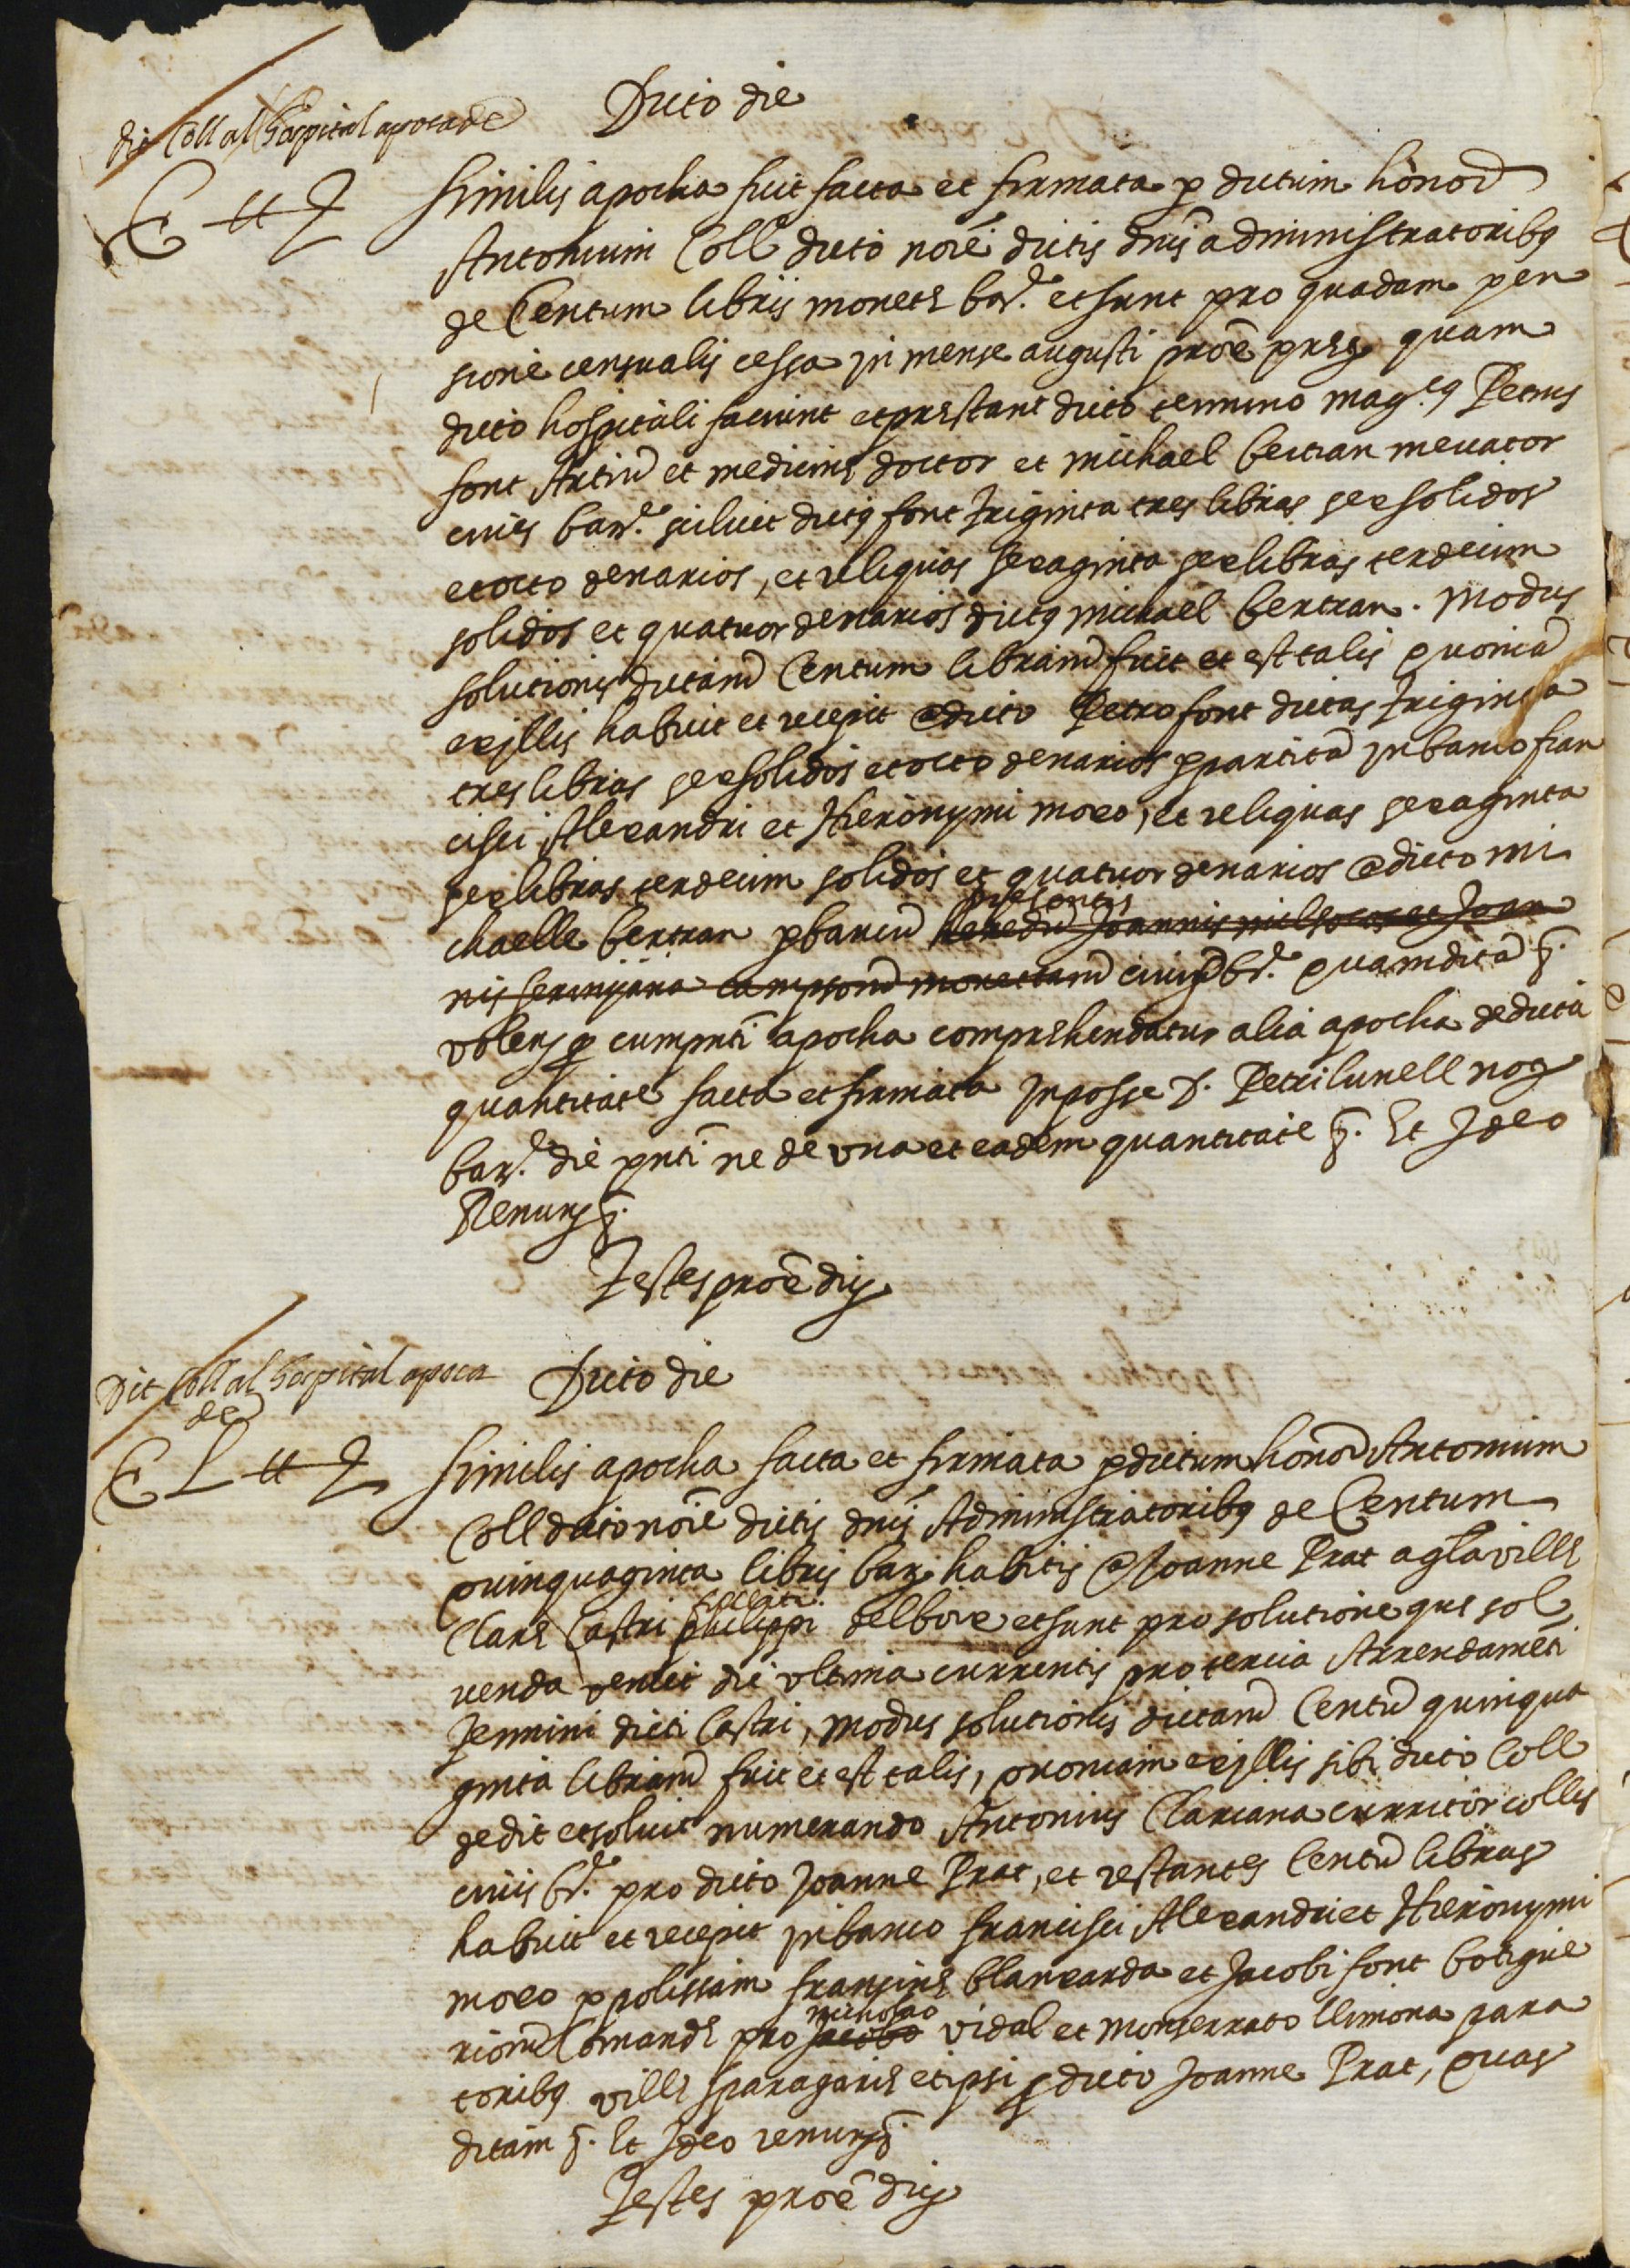 Dicto die
dit Coll al hospital apoca de
C ll
Similis apocha fuit facta et firmata p dictum honor
Antonium Coll dicto noie dictis dnis administratoribus
de Centum libris monetę bar. et sunt pro quadam pen
sione censualis cessa in mense augusti proe pręs quam
dicto hospitali faciunt et pręstant dicto termino mag.cus Petrus
font Artiu et medicinę doctor et michael bertran mercator
civis bar. scilicet dictus font triginta tres libras sex solidos
et octo denarios, et reliquas sexaginta sex libras terdecim
solidos et quatuor denarios dictus michael bertran. Modus
solutionis dictaru Centum libraru fuit et est talis quonia
ex illis habuit et recepit a dicto Petro font dictas triginta
tres libras sex solidos et octo denarios p partita in banco fran
cisci Alexandri et Hieronymi moxo, et reliquas sexaginta
sex libras terdecim solidos et quatuor denarios a dicto mi
chaelle bertran p bancu heredu Joannis et Joan
presentis
nis campsoru monetaru civiu br. quam dicta §.
volens q cum pnti apocha compręhendatur alia apocha de dicta
quantitate facta et firmata in posse d. Petri lunell nots
bar. die pnti ne de una et eadem quantitate §. Et Ideo
Renuns §.
Testes proe dij
Dicto die
Dit Coll al hospital apoca
de
C L ll
Similis apocha facta et firmata p dictum honor Antonium
Coll dicto noie dictis dnis Administratoribus de Centum
quinquaginta libris bar. habitis a Joanne Prat agla villę
Clarę Castri philippi delbore et sunt pro solutione quę sol
venda venit die ultima currentis pro tercia Arrendameti
termini dicti Castri, modus solutionis dictaru Centu quinqua
ginta libraru fuit et est talis, quoniam ex illis sibi dicto Coll
dedit et solvit numerando Antonius Clariana curritor collis
civis br. pro dicto Joanne Prat, et restantes Centu libras
habuit et recepit in banco francisci Alexandri et Hieronymi
moxo p polissam francinę blancarda et Jacobi font botigue
rioru Comandę pro Jacobo vidal et monserrato llimona para
micholao
toribus villę sparagarię et ipsi p dicto Joanne Prat, quas
ditam §. Et Ideo renuns §
Testes proe dij